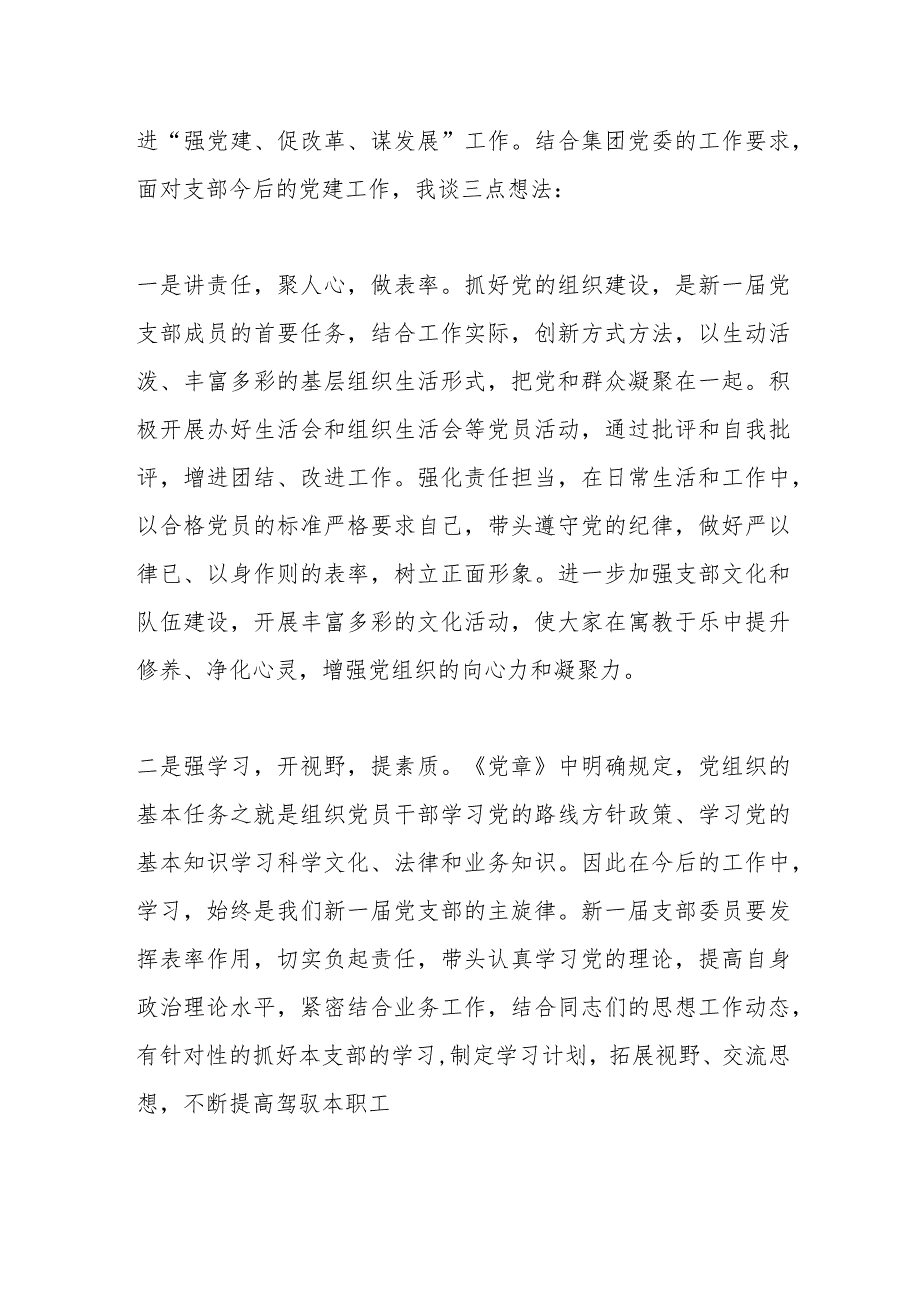 进“强党建、促改革、谋发展”工作。结合集团党委的工作要求，
面对支部今后的党建工作，我谈三点想法：
一是讲责任，聚人心，做表率。抓好党的组织建设，是新一届党
支部成员的首要任务，结合工作实际，创新方式方法，以生动活
泼、丰富多彩的基层组织生活形式，把党和群众凝聚在一起。积
极开展办好生活会和组织生活会等党员活动，通过批评和自我批
评，增进团结、改进工作。强化责任担当，在日常生活和工作中，
以合格党员的标准严格要求自己，带头遵守党的纪律，做好严以
律已、以身作则的表率，树立正面形象。进一步加强支部文化和
队伍建设，开展丰富多彩的文化活动，使大家在寓教于乐中提升
修养、净化心灵，增强党组织的向心力和凝聚力。
二是强学习，开视野，提素质。《党章》中明确规定，党组织的
基本任务之就是组织党员干部学习党的路线方针政策、学习党的
基本知识学习科学文化、法律和业务知识。因此在今后的工作中，
学习，始终是我们新一届党支部的主旋律。新一届支部委员要发
挥表率作用，切实负起责任，带头认真学习党的理论，提高自身
政治理论水平，紧密结合业务工作，结合同志们的思想工作动态，
有针对性的抓好本支部的学习,制定学习计划，拓展视野、交流思
想，不断提高驾驭本职工